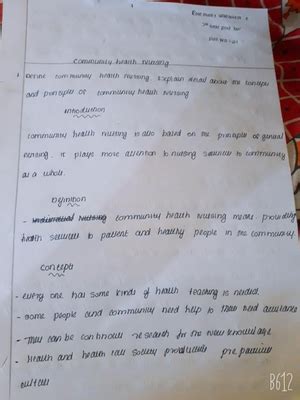 Community health nursing
Define community health nursing. Explain about the concepts
and principles of community health nursing
Introduction
community health nursing is also based on the principles of general
nursing. It plays more attention to nursing services to community
as a whole.
Definition
- community health nursing means providing
health services to patient and healthy people in the community.
Concepts
- every one has some kinds of health teaching is needed.
- some people and community need help to
- This can be continous research for the new knowledge
- Health and health society
B612